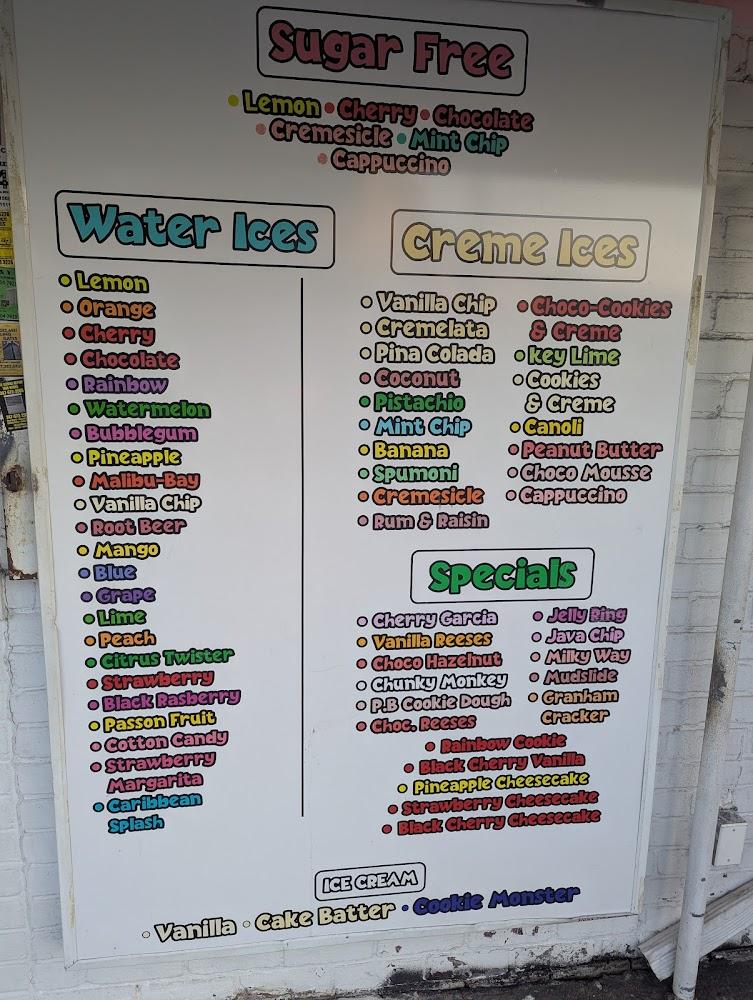 Sugar Free
• Lemon • Cherry • Chocolate
• Cremesicle • Mint Chip
• Cappuccino
Water Ices
• Lemon
• Orange
• Cherry
• Chocolate
• Rainbow
• Watermelon
• Bubblegum
• Pineapple
• Malibu-Bay
• Vanilla Chip
• Root Beer
• Mango
• Blue
• Grape
• Lime
• Peach
• Citrus Twister
• Strawberry
• Black Rasberry
• Passon Fruit
• Cotton Candy
• Strawberry
Margarita
• Caribbean
Splash
Creme Ices
• Vanilla Chip
• Cremelata
• Pina Colada
• Coconut
• Pistachio
• Mint Chip
• Banana
• Spumoni
• Cremesicle
• Rum & Raisin
• Choco-Cookies
& Creme
• key Lime
• Cookies
& Creme
• Canoli
• Peanut Butter
• Choco Mousse
• Cappuccino
Specials
• Cherry Garcia
• Vanilla Reeses
• Choco Hazelnut
• Chunky Monkey
• P.B Cookie Dough
• Choc. Reeses
• Jelly Ring
• Java Chip
• Milky Way
• Mudslide
• Granham
Cracker
• Rainbow Cookie
• Black Cherry Vanilla
• Pineapple Cheesecake
• Strawberry Cheesecake
• Black Cherry Cheesecake
ICE CREAM
• Vanilla • Cake Batter • Cookie Monster